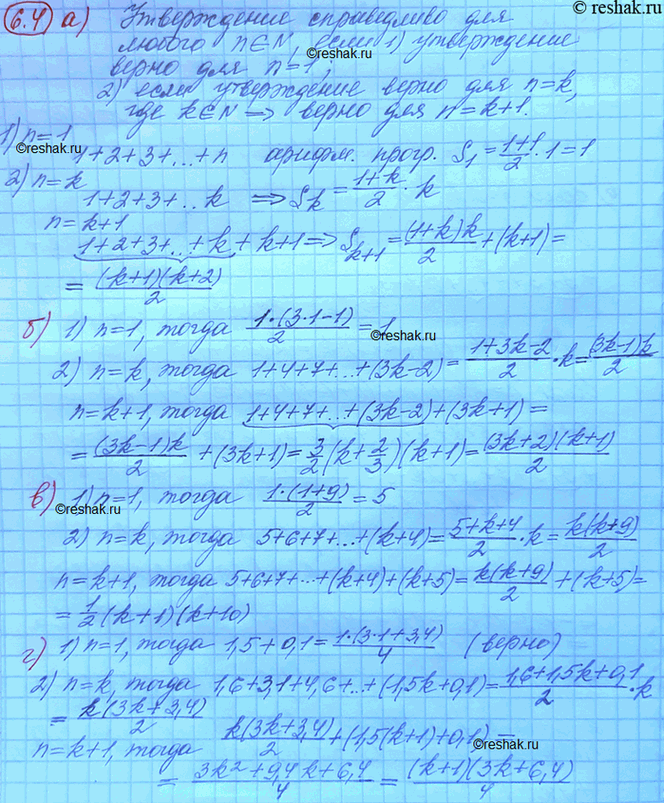 © reshak.ru
6.4 а) Утверждение справедливо для
любого n∈N, если 1) утверждение
верно для n=1;
2) если утверждение верно для n=k,
где k∈N ⟹ верно для n=k+1.
1) n=1
1+2+3+...+n арифм. прогр. S₁ = (1+1)/2 · 1 = 1
2) n=k
1+2+3+...k ⟹ Sₖ = (1+k)/2 · k
n=k+1
1+2+3+...+k + k+1 ⟹ Sₖ₊₁ = ((1+k)k)/2 + (k+1) =
= ((k+1)(k+2))/2
б) 1) n=1, тогда (1·(3·1-1))/2 = 1
2) n=k, тогда 1+4+7+...+(3k-2) = (1+3k-2)/2 · k = ((3k-1)k)/2
n=k+1, тогда 1+4+7+...+(3k-2)+(3k+1) =
= ((3k-1)k)/2 + (3k+1) = 3/2 (k+2/3)(k+1) = ((3k+2)(k+1))/2
в) 1) n=1, тогда (1·(1+9))/2 = 5
2) n=k, тогда 5+6+7+...+(k+4) = (5+k+4)/2 · k = (k(k+9))/2
n=k+1, тогда 5+6+7+...+(k+4)+(k+5) = (k(k+9))/2 + (k+5) =
= 1/2 (k+1)(k+10)
г) 1) n=1, тогда 1,5+0,1 = (1·(3·1+3,4))/4 (верно)
2) n=k, тогда 1,6+3,1+4,6+...+(1,5k+0,1) = (1,6+1,5k+0,1)/2 · k
= (k(3k+3,4))/2
n=k+1, тогда (k(3k+3,4))/2 + (1,5(k+1)+0,1) =
= (3k²+9,4k+6,4)/4 = ((k+1)(3k+6,4))/4
©reshak.ru
©reshak.ru
©reshak.ru
©reshak.ru
©reshak.ru